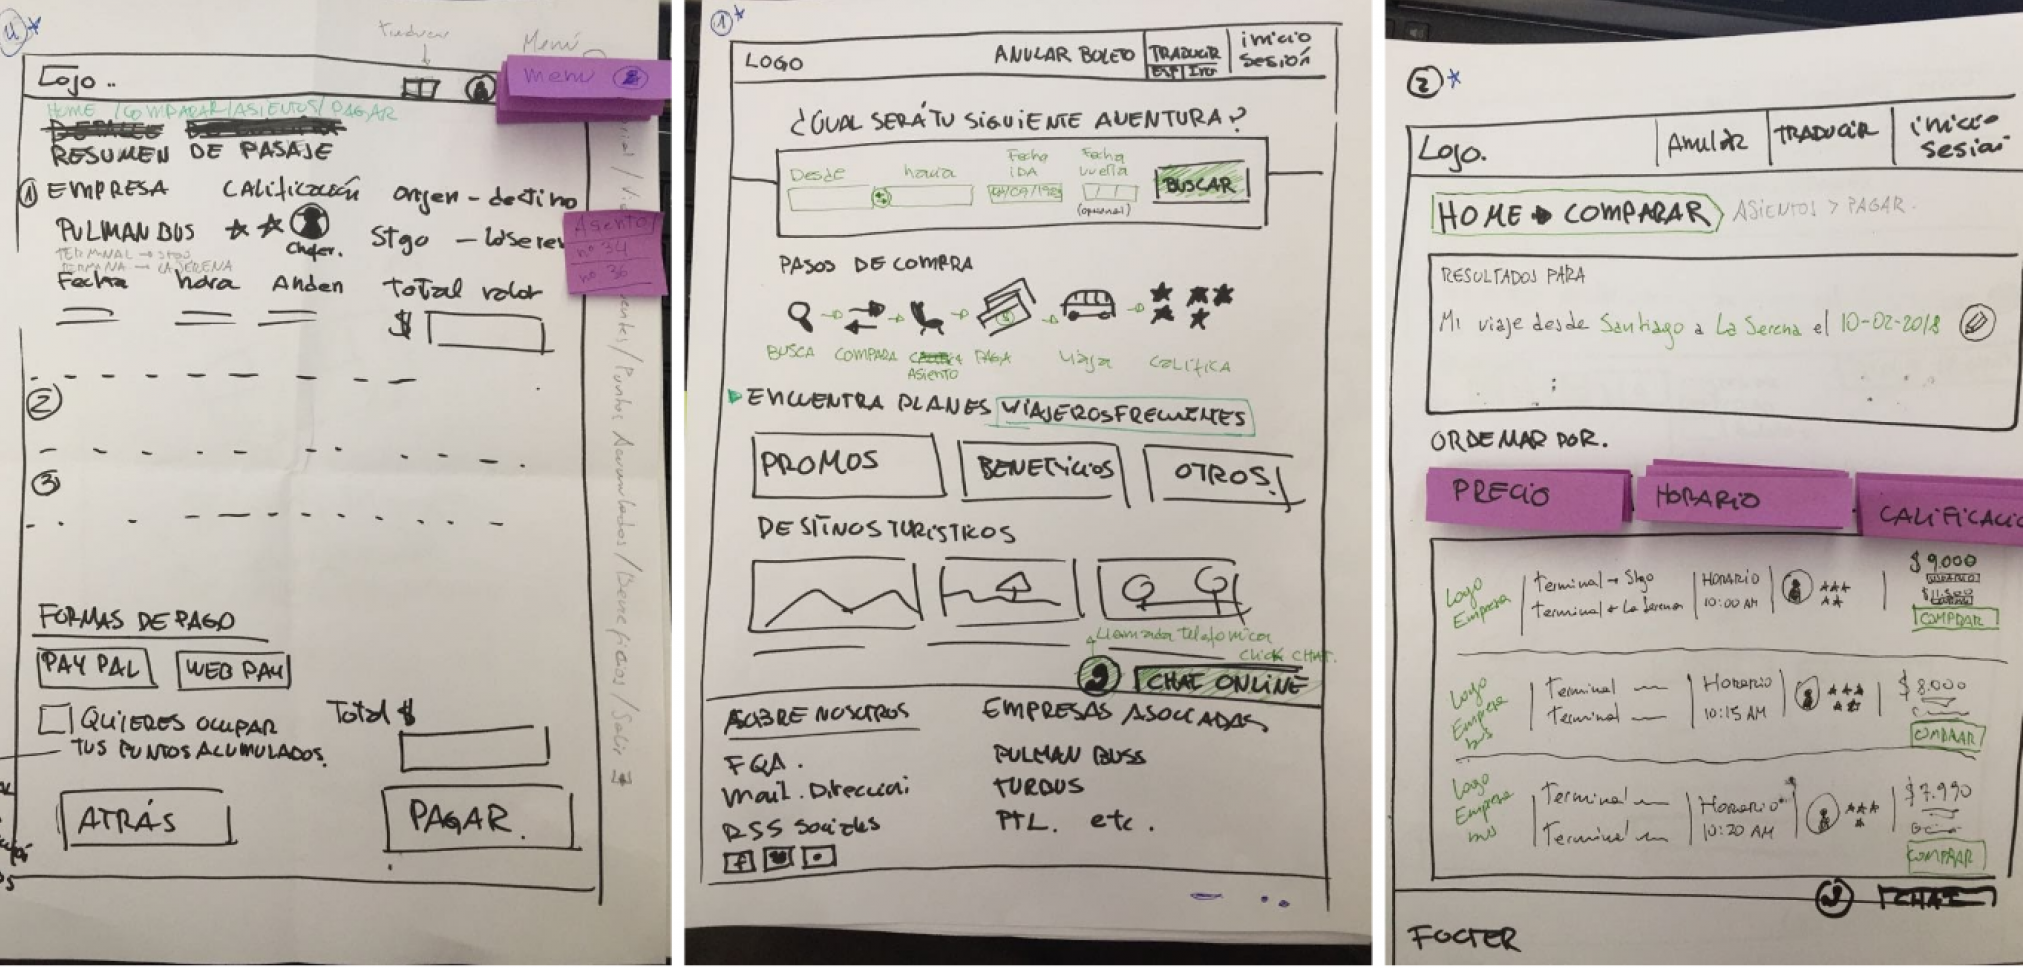 4*
traducir
Menú
Logo ..
menu
HOME / COMPARAR / ASIENTOS / PAGAR
RESUMEN DE PASAJE
1 EMPRESA CALIFICACIÓN Origen - destino
PULMAN BUS Chofer. Stgo - La Seren
TERMINAL → Stgo
TERMINA → LA SERENA
Asientos
nº 34
nº 36
Fecha hora Anden Total valor
$
2
3
/ Puntos Acumulados / Beneficios / Salir
FORMAS DE PAGO
PAY PAL WEB PAY
QUIERES OCUPAR
TUS PUNTOS ACUMULADOS.
Total $
ATRÁS PAGAR.
1*
LOGO ANULAR BOLETO TRADUCIR inicio sesión
Esp Ing
¿CUAL SERÁ TU SIGUIENTE AVENTURA?
Desde hacia Fecha IDA Fecha vuelta
(opcional)
BUSCAR
PASOS DE COMPRA
BUSCA COMPARA ASIENTO PAGA Viaja CALIFICA
ENCUENTRA PLANES VIAJEROS FRECUENTES
PROMOS BENEFICIOS OTROS.
DESTINOS TURISTICOS
Llamada telefonica
CLICK CHAT.
CHAT ONLINE
SOBRE NOSOTROS EMPRESAS ASOCIADAS
FQA. PULMAN BUSS
Mail. Direccioi TURBUS
RSS Sociales PTL. etc.
f
2*
Logo. Anular TRADUCIR inicio sesion
HOME COMPARAR ASIENTOS > PAGAR.
RESULTADOS PARA
Mi viaje desde Santiago a La Serena el 10-02-2018
ORDENAR POR.
PRECIO HORARIO CALIFICACIO
Logo Empresa
Terminal → Stgo
Terminal → La Serena
HORARIO
10:00 AM
$9.000
$11.500
COMPRAR
Logo Empresa bus
Terminal
Terminal
Horario
10:15 AM
$8.000
COMPRAR
Logo Empresa bus
Terminal
Terminal
Horario
10:20 AM
$7.990
COMPRAR
CHAT
FOOTER